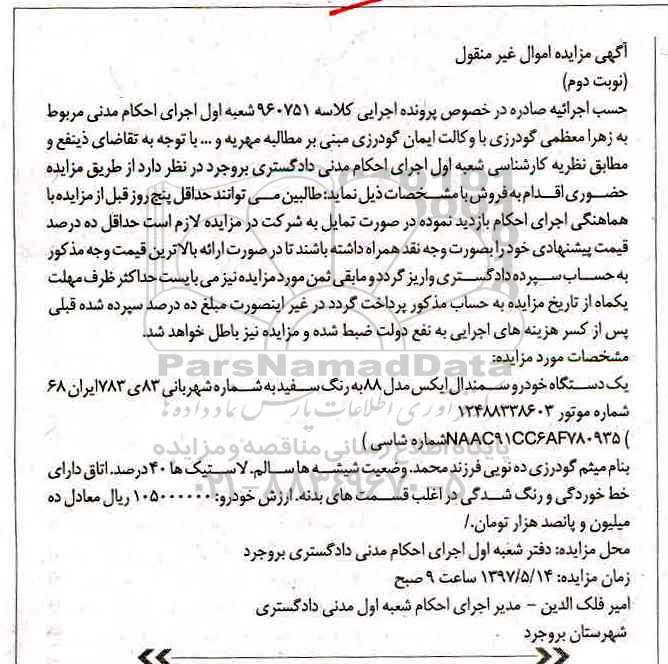 آگهی مزایده اموال غیر منقول
(نوبت دوم)
حسب اجرائیه صادره در خصوص پرونده اجرایی کلاسه ۹۶۰۷۵۱ شعبه اول اجرای احکام مدنی مربوط
به زهرا معظمی گودرزی با وکالت ایمان گودرزی مبنی بر مطالبه مهریه و ... با توجه به تقاضای ذینفع و
مطابق نظریه کارشناسی شعبه اول اجرای احکام مدنی دادگستری بروجرد در نظر دارد از طریق مزایده
حضوری اقدام به فروش با مشخصات ذیل نماید: طالبین می توانند حداقل پنج روز قبل از مزایده با
هماهنگی اجرای احکام بازدید نموده در صورت تمایل به شرکت در مزایده لازم است حداقل ده درصد
قیمت پیشنهادی خود را بصورت وجه نقد همراه داشته باشند تا در صورت ارائه بالاترین قیمت وجه مذکور
به حساب سپرده دادگستری واریز گردد و مابقی ثمن مورد مزایده نیز می بایست حداکثر ظرف مهلت
یکماه از تاریخ مزایده به حساب مذکور پرداخت گردد در غیر اینصورت مبلغ ده درصد سپرده شده قبلی
پس از کسر هزینه های اجرایی به نفع دولت ضبط شده و مزایده نیز باطل خواهد شد.
ParsNamadData
مشخصات مورد مزایده:
یک دستگاه خودرو سمندال ایکس مدل ۸۸ به رنگ سفید به شماره شهربانی ۸۳ی ۷۸۳ایران ۶۸
شماره موتور ۱۲۴۸۸۳۳۸۶۰۳
) NAAC۹۱CC۶AF۷۸۰۹۳۵شماره شاسی )
پایگاه اطلاع رسانی مناقصه و مزایده
بنام میثم گودرزی ده نویی فرزند محمد. وضعیت شیشه ها سالم. لاستیک ها ۴۰ درصد. اتاق دارای
۰۲۱-۸۸۳۴۹۶۷۰-۵
خط خوردگی و رنگ شدگی در اغلب قسمت های بدنه. ارزش خودرو: ۱۰۵۰۰۰۰۰۰ ریال معادل ده
میلیون و پانصد هزار تومان./
محل مزایده: دفتر شعبه اول اجرای احکام مدنی دادگستری بروجرد
زمان مزایده: ۱۳۹۷/۵/۱۴ ساعت ۹ صبح
امیر فلک الدین - مدیر اجرای احکام شعبه اول مدنی دادگستری
شهرستان بروجرد